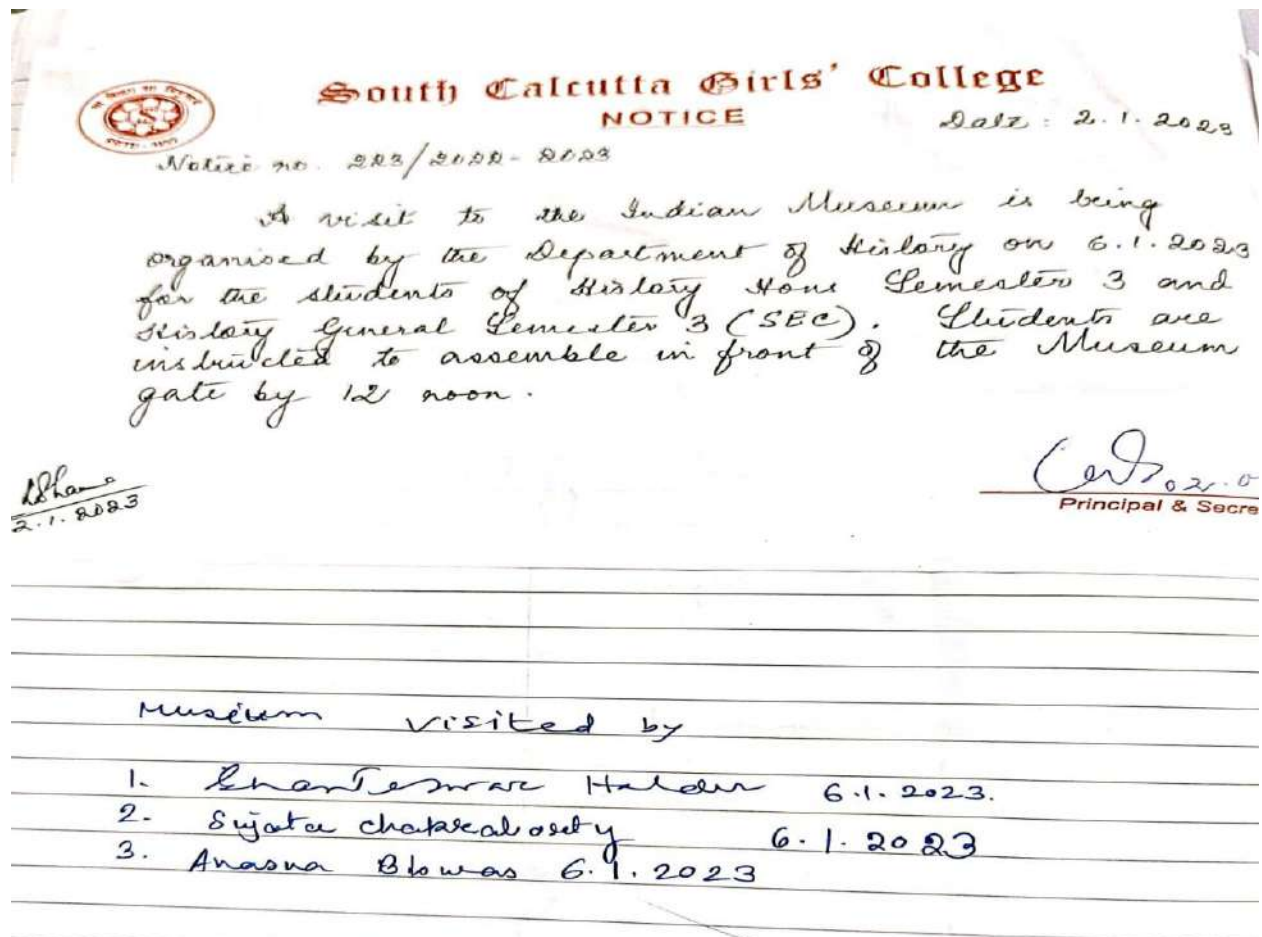 South Calcutta Girls' College
NOTICE
Date : 2.1.2023
Notice no. 223/2022-2023
A visit to the Indian Museum is being
organised by the Department of History on 6.1.2023
for the students of History Hons Semester 3 and
History General Semester 3 (SEC). Students are
instructed to assemble in front of the Museum
gate by 12 noon.
2.1.2023
Principal & Secre
Museum visited by
1. Halder 6.1.2023.
2. Sujata Chakraborty 6.1.2023
3. Anasua Biswas 6.1.2023